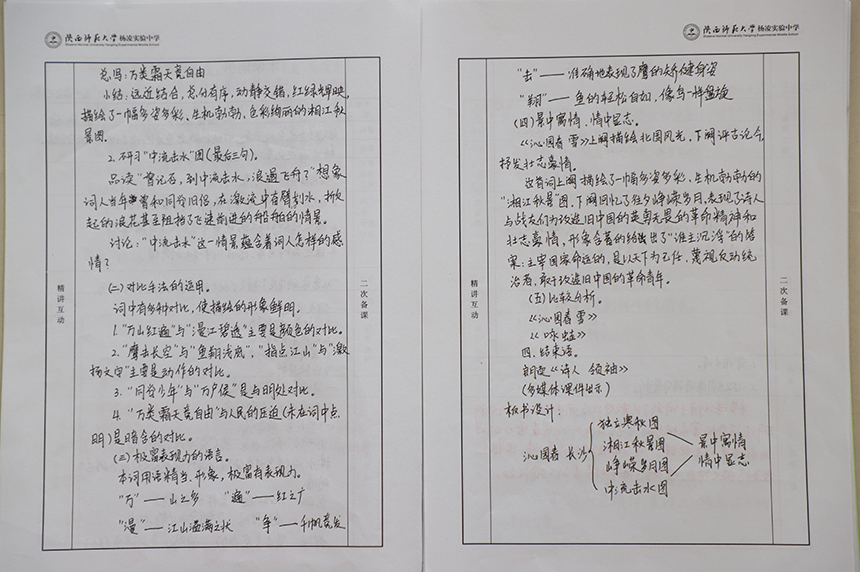 陕西师范大学 杨凌实验中学
Shaanxi Normal University Yangling Experimental Middle School
总写：万类霜天竞自由
小结：远近结合，总分有序，动静交错，红绿辉映，
描绘了一幅多姿多彩、生机勃勃、色彩绚丽的湘江秋
景图。
2. 研习"中流击水"图(最后三句)。
品读"曾记否，到中流击水，浪遏飞舟？"想象
词人当年曾和同学旧侣，在激流中奋臂划水，掀
起的浪花甚至阻挡了飞速前进的船舶的情景。
讨论："中流击水"这一情景蕴含着词人怎样的感
情？
(二)对比手法的运用。
词中有多种对比，使描绘的形象鲜明。
1."万山红遍"与"漫江碧透"主要是颜色的对比。
2."鹰击长空"与"鱼翔浅底"，"指点江山"与"激
扬文字"主要是动作的对比。
3."同学少年"与"万户侯"是与明处对比。
4."万类霜天竞自由"与人民的压迫(未在词中点
明)是暗含的对比。
(三)极富表现力的语言。
本词用语精当、形象，极富有表现力。
"万"——山之多 "遍"——红之广
"漫"——江山溢满之状 "争"——千帆竞发
精讲互动
二次备课
陕西师范大学 杨凌实验中学
Shaanxi Normal University Yangling Experimental Middle School
"击"——准确地表现了鹰的矫健身姿
"翔"——鱼的轻松自如，像鸟一样盘旋
(四)景中寓情、情中显志。
《沁园春 雪》上阕描绘北国风光，下阕评古论今
抒发壮志豪情。
这首词上阕描绘了一幅多姿多彩、生机勃勃的
"湘江秋景"图，下阕回忆了往夕峥嵘岁月，表现了诗人
与战友们为改造旧中国的英勇无畏的革命精神和
壮志豪情，形象含蓄的给出了"谁主沉浮"的答
案：主宰国家命运的，是以天下为己任，蔑视反动统
治者，敢于改造旧中国的革命青年。
(五)比较分析。
《沁园春 雪》
《咏蛙》
四、结束语。
朗读《诗人 领袖》
(多媒体课件出示)
板书设计：
沁园春 长沙
独立寒秋图
湘江秋景图
峥嵘岁月图
中流击水图
景中寓情
情中显志
精讲互动
二次备课